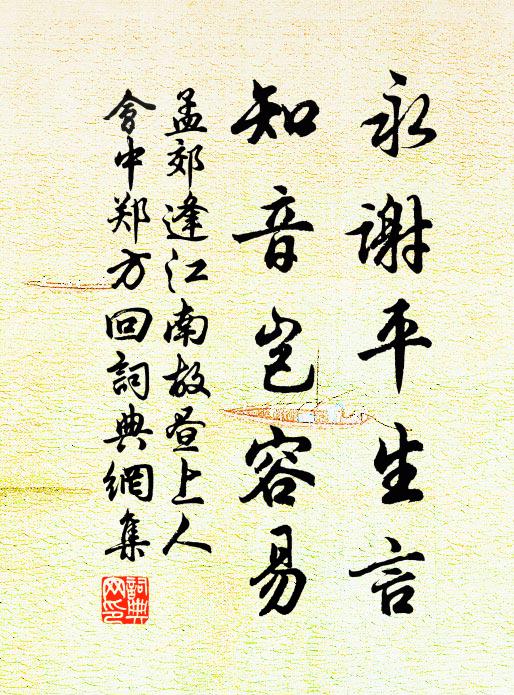 永谢平生言
知音岂容易
孟郊逢江南故昼上人
會中郑方回詞典網集
詞典網印